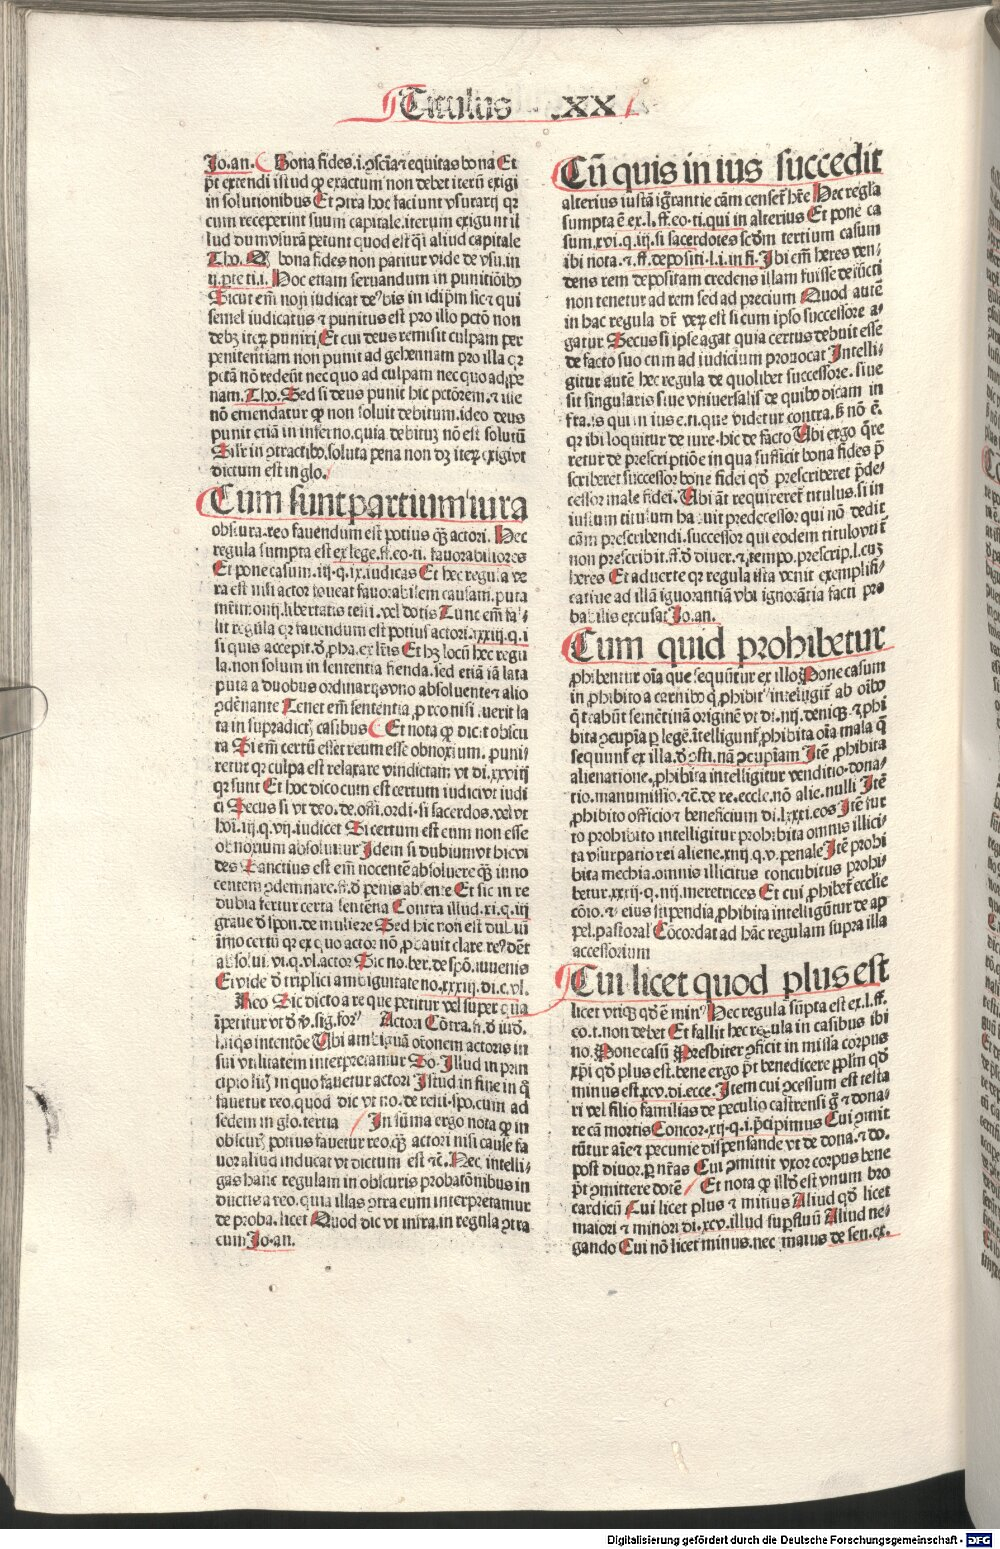 Titulus .XX
Jo.an. Bona fides.i.ↄscīa ⁊ equitas bona Et
p̄t extendi istud ꝙ exactum non debet iterū exigi
in solutionibus Et ↄtra hoc faciunt vsurarij qꝛ
cum receperint suum capitale.iterum exigunt il
lud dum vsurā petunt quod est q̄i aliud capitale
Tho. bona fides non patitur vide de vsu.in
ij.pte ti.i. Hoc etiam seruandum in punitiōibꝰ
Sicut em̄ non iudicat deꝰ bis in idip̄m sic ⁊ qui
semel iudicatus ⁊ punitus est pro illo pctō non
debꝫ iteꝝ puniri Et cui deus remisit culpam per
penitentiam non punit ad gehennam pro illa qꝛ
pctā nō redeūt nec quo ad culpam nec quo ad pe
nam. Tho. Sed si deus punit hic pctōrem. ⁊ ille
nō emendatur ꝙ non soluit debitum. ideo deus
punit etiā in inferno. quia debitum nō est solutū
in ↄtractibꝰ. soluta pena non dꝫ iteꝝ exigi vt
dictum est in glo.
Cum sunt partium iura
obscura.reo fauendum est potius qꝫ actori. Hec
regula sumpta est ex lege.ff.eo.ti. fauorabiliores
Et pone casum.iij.q.ix.iudicas Et hec regula ve
ra est nisi actor foueat fauorabilem causam.puta
mr̄imonij.libertatis testi. vel dotis Tunc em̄ fal-
lit regula qꝛ fauendum est potius actori.xxxiij.q.i
si quis accepit. Et hꝫ locū hec regu
la.non solum in sententia fienda.sed etiā iā lata
puta a duobus ordinarijs vno absoluente ⁊ alio
ↄdēnante Tenet em̄ sententia
ta in supradictꝭ casibus Et nota ꝙ dicit obscu
ra Si em̄ certū esset reum esse obnoxium. puni-
retur qꝛ culpa est relaxare vindictam vt di.xxviij
qꝛ sunt Et hoc dico cum est certum iudici vt iudi
ci Secus si vt deo.de offi.ordi.si sacerdos.vel vt
hoī.iij.q.vij.iudicet Si certum est eum non esse
obnoxium absoluitur Idem si dubium vt hic vi
des Sanctius est em̄ nocentē absoluere qꝫ inno
centem ↄdemnare.ff.d̄ penis absente Et sic in re
dubia fertur certa sentēna Contra illud.xi.q.iij
graue d̄ spon.de muliere Sed hic non est dubiū
īmo certū qꝛ ex quo actor nō ꝓbauit clare reꝰ dēt
absolui.vi.q.vl.actor Sic no.ber.de spō.iuuenis
Et vide d̄ triplici ambiguitate no.xxxiij.di.c.vl.
Rico Sic dicto a re que petitur vel super qua
īpetitur vt d̄ v̄.sig.forꝰ Actori Cōtra.ff.d̄ iud.
si quis intentōe Ubi ambiguā oōnem actoris in
sui vtilitatem interpretamur So. Illud in prin
cipio litꝭ in quo fauetur actori Istud in fine in q̄
fauetur reo.quod dic vt no.de resti.spo.cum ad
sedem in glo.tertia In sūma ergo nota ꝙ in
obscurꝭ potius fauetur reo.qꝫ actori nisi cause fa
uor aliud inducat vt dictum est ⁊c. Nec intelli-
gas hanc regulam in obscuris probatōnibus in
ductis a reo.quia illas ↄtra eum interpretamur
de proba.licet Quod dic vt infra.in regula ↄtra
eum Jo.an.
Cū quis in ius succedit
alterius iustā ig̅rantie cām censet̄ hr̄e Hec regl̄a
sumpta ē ex.l.ff.eo.ti.qui in alterius Et pone ca
sum.xvi.q.iij.si sacerdotes scd̄m tertium casum
ibi nota.⁊.ff.depositi.l.i.in fi. Ibi em̄ heres ven-
dens rem depositam credens illam fuisse defūcti
non tenetur ad rem sed ad precium Quod autē
in hac regula dr̄ veꝝ est si cum ipso successore a-
gatur. Secus si ipse agat quia certus debuit esse
de facto suo cum ad iudicium prouocat Intelli-
gitur autē hec regula de quolibet successore.siue
sit singularis siue vniuersalis de quibꝰ dicam in
fra.is qui in ius e.ti.que videtur contra. nō ē.
qꝛ ibi loquitur de iure.hic de facto Ubi ergo q̄re
retur de prescriptiōe in qua sufficit bona fides p̄
scriberet successor bone fidei qd̄ prescriberet p̄de-
cessor male fidei. Ubi āt requireret̄ titulus.si in
iustum titulum habuit predecessor qui nō dedit
cām prescribendi.successor qui eodem titulo vtit̄
non prescribit.ff.d̄ diuer.⁊ tempo.prescrip.l.cuꝫ
heres Et aduerte qꝛ regula ista venit exemplifi-
catiue ad illā ignorantiā vbi ignorātia facti pro
babilis excusat Jo.an.
Cum quid prohibetur
ꝓhibentur oīa que sequūtur ex illo Pone casum
in ꝓhibito a carnibꝰ q̄ ꝓhibitꝰ intelligit̄ ab oībꝰ
q̄ trahūt semētinā originē vt di.iiij.deniqꝫ ⁊ ꝓhi
bita ↄcupīa ꝑ legē.ītelligunt̄ ꝓhibita oīa mala q̄
sequunt̄ ex illa. nā ↄcupīam Itē ꝓhibita
alienatione.ꝓhibita intelligitur venditio.dona-
tio.manumissio.⁊c̄.de re.eccle.nō alie.nulli Itē
ꝓhibito officio ⁊ beneficium di.lxxxi.eos Itē fur
to prohibito intelligitur prohibita omnis illici-
ta vsurpatio rei aliene.xiiij.q.v.penale Itē prohi
bita mechia.omnis illicitus concubitus prohi-
betur.xxxij.q.iiij.meretrices Et cui ꝓhibet̄ ecclīe
cōio.⁊ eius stipendia ꝓhibita intelligūtur de ap
pel.pastoral Cōcordat ad hāc regulam supra illa
accessorium
Cui licet quod plus est
licet vtiqꝫ qd̄ ē minꝰ Hec regula sūpta est ex.l.ff.
eo.t.non debet Et fallit hec regula in casibus ibi
no. Pone casū Presbiter ↄficit in missa corpus
xp̄i qd̄ plus est.bene ergo p̄t benedicere pp̄lm qd̄
minus est.xcv.di.ecce. Item cui ↄcessum est testa
ri vel filio familias de peculio castrensi g̅ ⁊ dona-
re cā mortis Concor.xij.q.i.p̄cipimus Cui ↄmit
tūtur aīe ⁊ pecunie dispensande vt de dona.⁊ do.
post diuor.ꝑ nr̄as Cui ↄmittit vxor corpus bene
p̄t ↄmittere dotē Et nota ꝙ illd̄ est vnum bro
cardicū Cui licet plus ⁊ minus Aliud qd̄ licet
maiori ⁊ minori di.xcv.illud suꝑfluū Aliud ne-
gando Cui nō licet minus.nec maius de sen.ex.
Digitalisierung gefördert durch die Deutsche Forschungsgemeinschaft - DFG